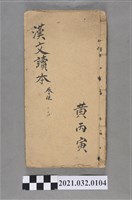 漢文讀本
黃丙寅
2021.032.0104